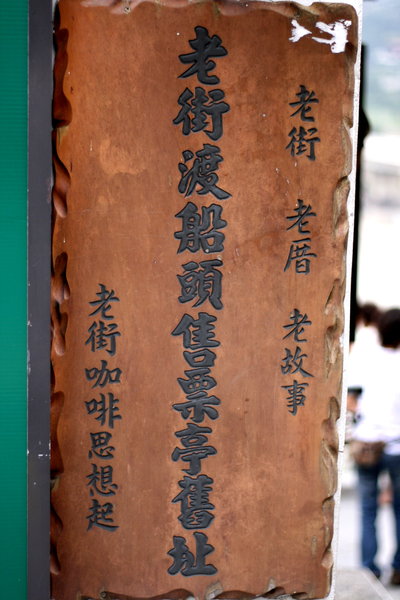 老街 老厝 老故事
老街渡船頭售票亭舊址
老街咖啡思想起